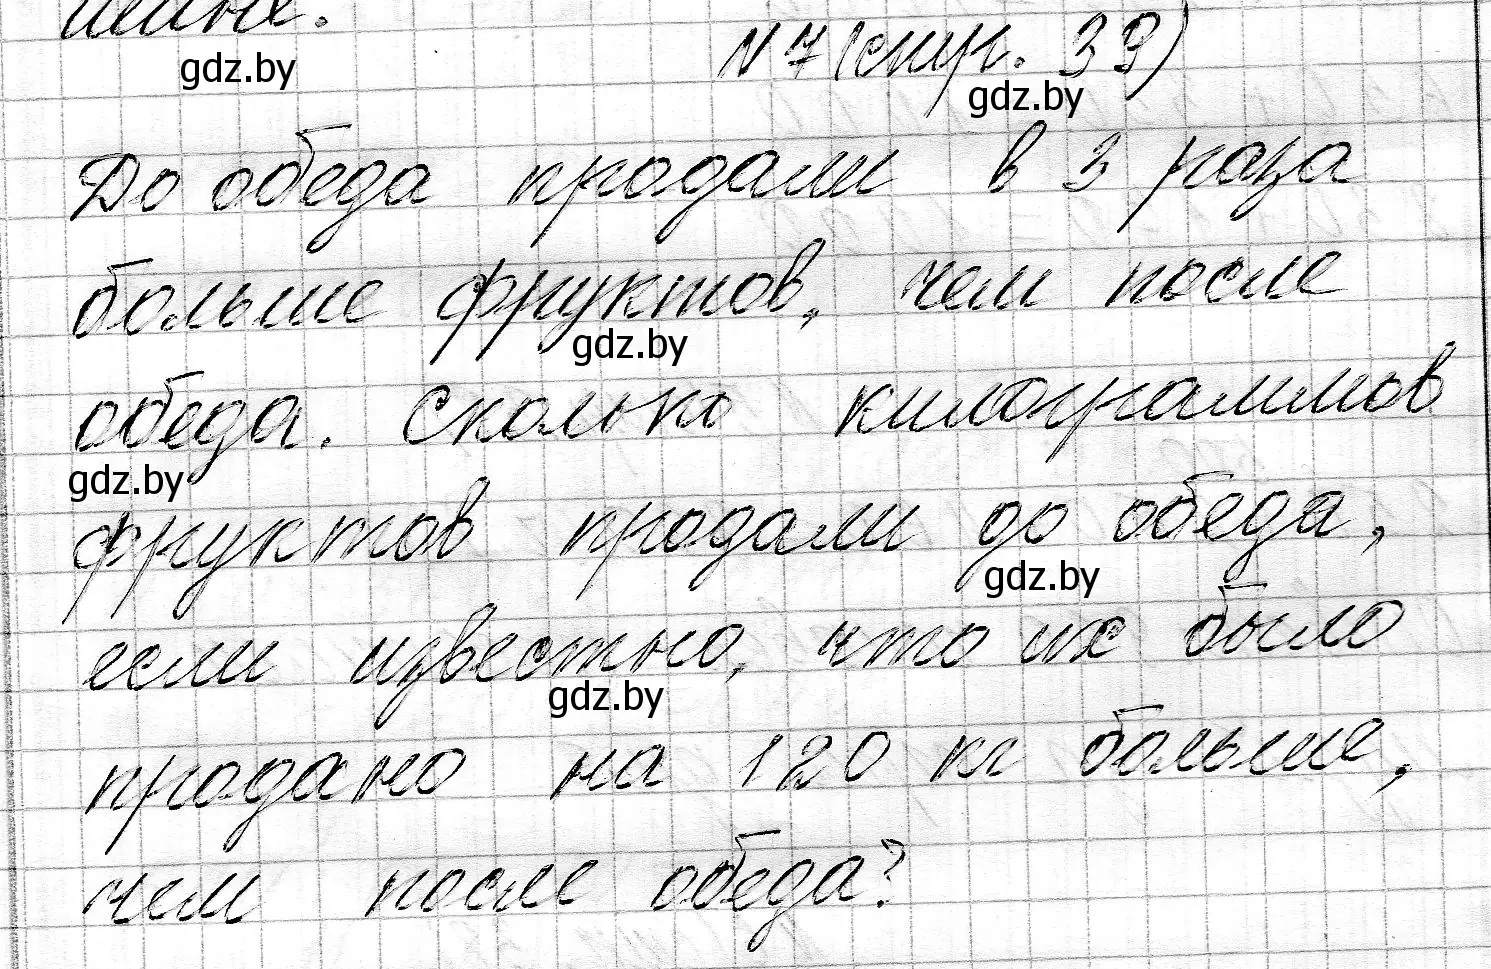 gdz.by
№7 (стр. 39)
gdz.by
До обеда продали в 3 раза
больше фруктов, чем после
gdz.by
обеда. Сколько килограммов
gdz.by
фруктов продали до обеда,
gdz.by
если известно, что их было
gdz.by
продано на 120 кг больше,
чем после обеда?